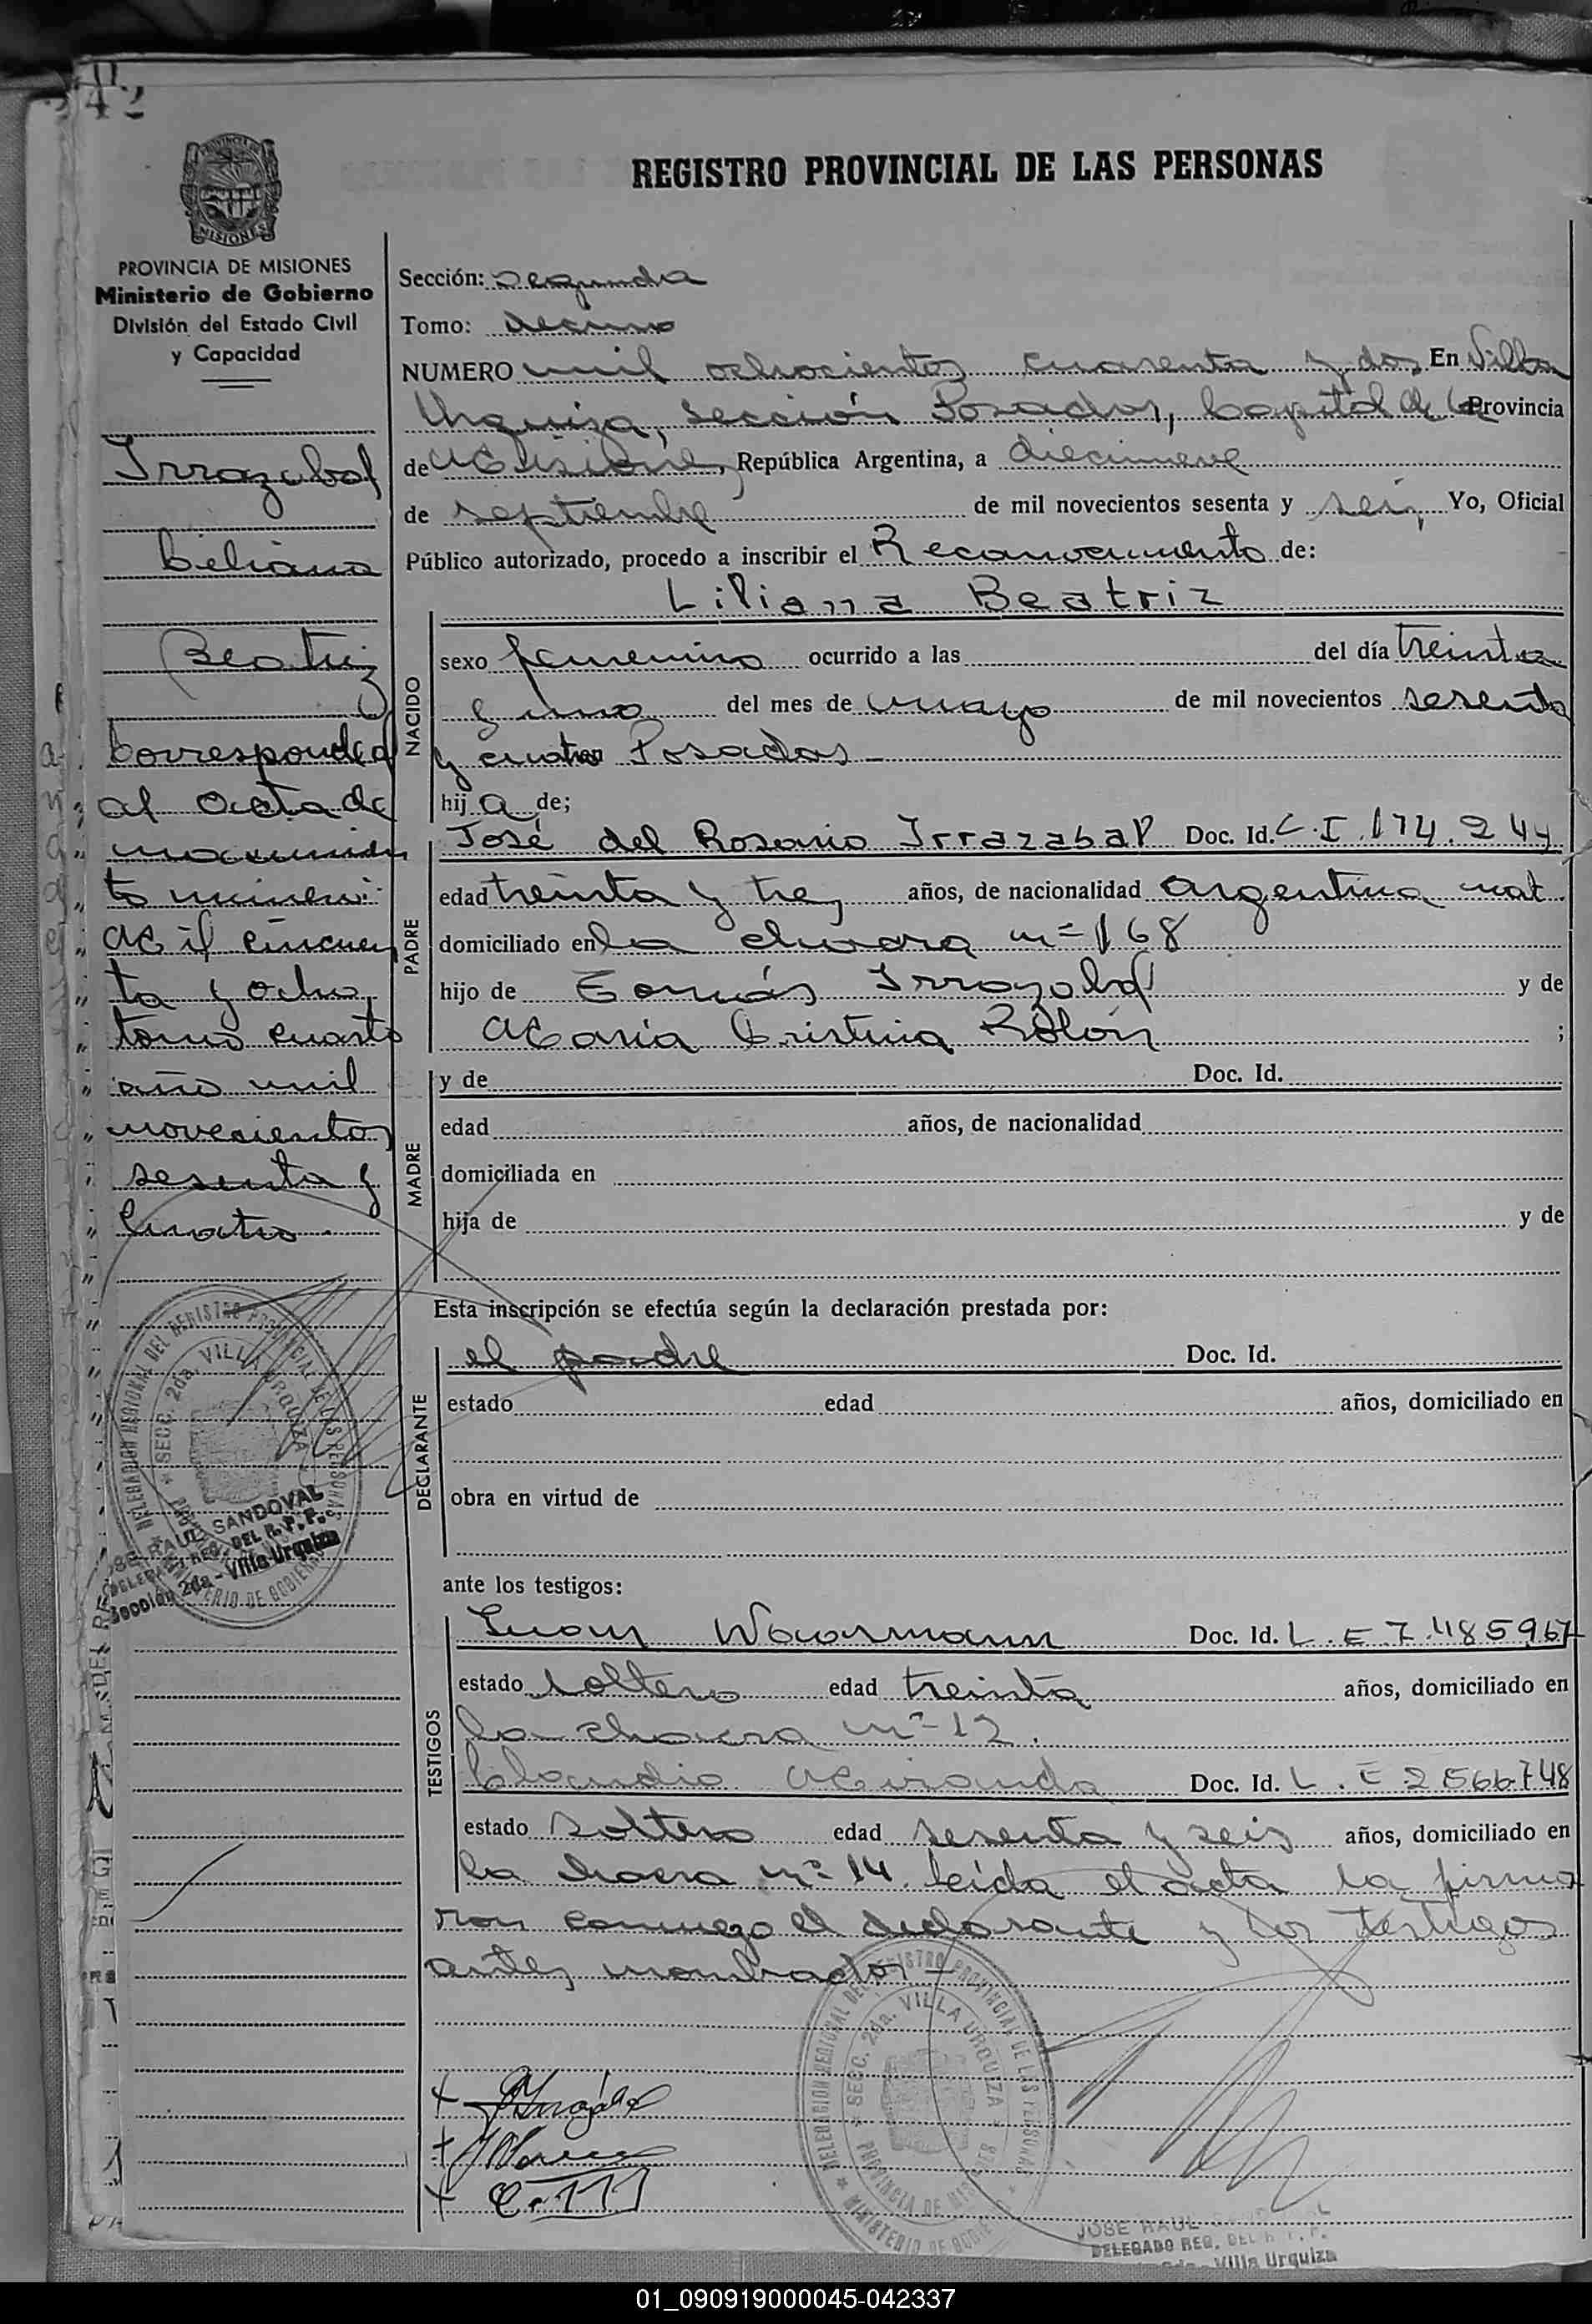 42
REGISTRO PROVINCIAL DE LAS PERSONAS
MISIONES
PROVINCIA DE MISIONES
Ministerio de Gobierno
División del Estado Civil
y Capacidad
Irrazabal
Liliana
Beatriz
Corresponded
al acta de
nacimien
to número:
Mil cincuen
ta y ocho,
tomo cuarto
año mil
novecientos
sesenta y
Cuatro
Sección: segunda
Tomo: decimo
NUMERO mil ochocientos cuarenta y dos En Villa
Urquiza, Sección Posadas, Capital de la Provincia
de Misiones, República Argentina, a diecinueve
de septiembre de mil novecientos sesenta y seis, Yo, Oficial
Público autorizado, procedo a inscribir el Reconocimiento de:
Liliana Beatriz
NACIDO
sexo femenino ocurrido a las del día treinta
y uno del mes de mayo de mil novecientos sesenta
y cuatro Posadas
hij a de;
PADRE
José del Rosario Irrazabal Doc. Id. C.I. 174.244
edad treinta y tres años, de nacionalidad argentina nat.
domiciliado en la chacra nº 168
hijo de Tomás Irrazabal y de
Maria Cristina Rolón ;
MADRE
y de Doc. Id.
edad años, de nacionalidad
domiciliada en
hija de y de
Esta inscripción se efectúa según la declaración prestada por:
DECLARANTE
el padre Doc. Id.
estado edad años, domiciliado en
obra en virtud de
ante los testigos:
TESTIGOS
Juan Doc. Id. L.E 7.485967
estado soltero edad treinta años, domiciliado en
la chacra nº 12.
Claudio Miranda Doc. Id. L.E 2566748
estado Soltero edad sesenta y seis años, domiciliado en
la chacra nº 14. Leída el acta la firma
ron conmigo el declarante y los testigos
antes nombrados -
DELEGACION REGIONAL DEL REGISTRO PROVINCIAL DE LAS PERSONAS
SECC. 2da. VILLA URQUIZA
PROVINCIA DE MISIONES
MINISTERIO DE GOBIERNO
JOSE RAUL SANDOVAL
DELEGADO REG. DEL R. P. P.
Sección 2da - Villa Urquiza
DELEGACION REGIONAL DEL REGISTRO PROVINCIAL DE LAS PERSONAS
SECC. 2da. VILLA URQUIZA
PROVINCIA DE MISIONES
MINISTERIO DE GOBIERNO
JOSE RAUL SANDOVAL
DELEGADO REG. DEL R. P. P.
2da - Villa Urquiza
01_090919000045-042337